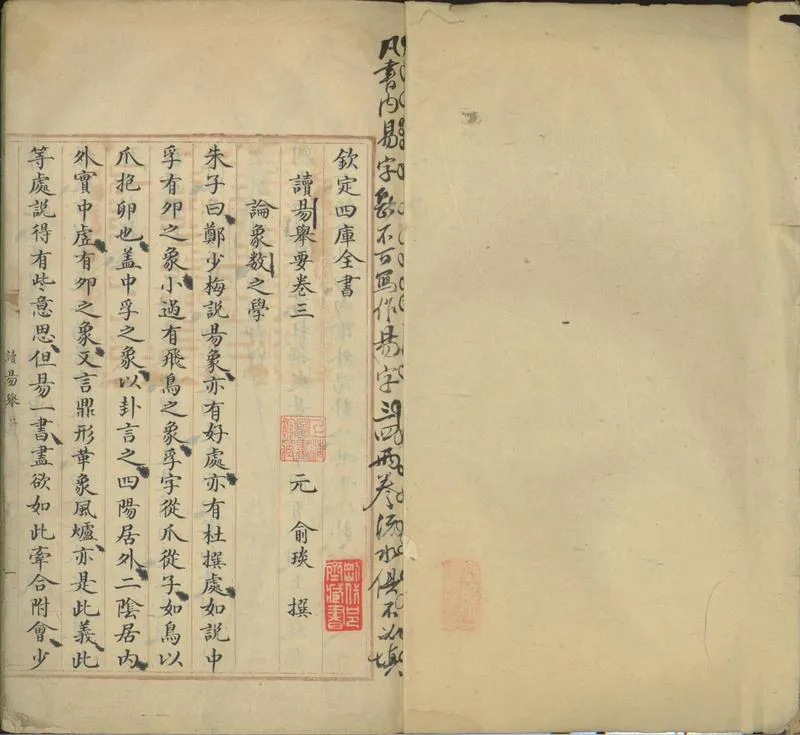 凡書內易字務不可寫作昜字三四兩卷流水俱不必填
欽定四庫全書
讀昜舉要卷三
元 俞琰 撰
論象數之學
朱子曰鄭少梅説昜象亦有好處亦有杜撰處如説中
孚有卵之象小過有飛鳥之象孚字從爪從子如鳥以
爪抱卵也蓋中孚之象以卦言之四陽居外二陰居内
外實中虛有卵之象又言鼎形革象風爐亦是此義此
等處説得有些意思但昜一書盡欲如此牽合附會少
讀昜舉要
一